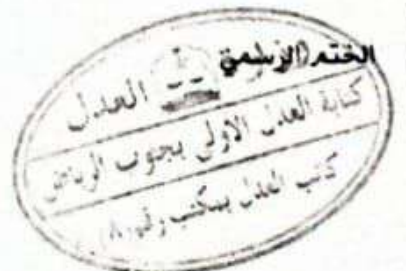 الختم الرسمي
العدل
كتابة العدل الاولى بجنوب الرياض
كاتب العدل بمكتب رقم